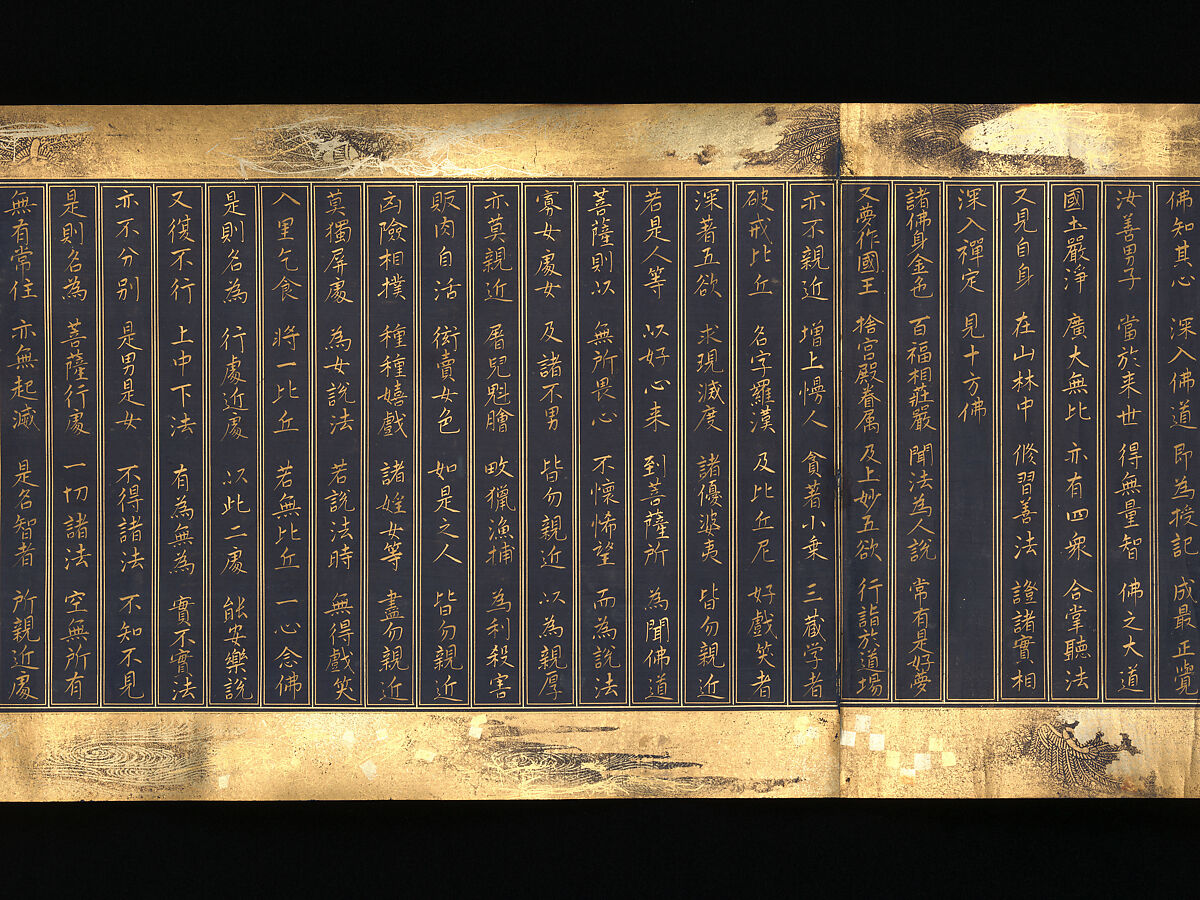 佛知其心 深入佛道 即為授記 成最正覺
汝善男子 當於来世 得無量智 佛之大道
國土嚴淨 廣大無比 亦有四衆 合掌聽法
又見自身 在山林中 修習善法 證諸實相
深入禪定 見十方佛
諸佛身金色 百福相莊嚴 聞法為人說 常有是好夢
又夢作國王 捨宮殿眷属 及上妙五欲 行詣於道場
亦不親近 增上慢人 貪著小乗 三蔵学者
破戒比丘 名字羅漢 及比丘尼 好戲笑者
深著五欲 求現滅度 諸優婆夷 皆勿親近
若是人等 以好心来 到菩薩所 為聞佛道
菩薩則以 無所畏心 不懷悕望 而為說法
寡女處女 及諸不男 皆勿親近 以為親厚
亦莫親近 屠兒魁膾 畋獵漁捕 為利殺害
販肉自活 衒賣女色 如是之人 皆勿親近
凶險相撲 種種嬉戲 諸婬女等 盡勿親近
莫獨屏處 為女說法 若說法時 無得戲笑
入里乞食 將一比丘 若無比丘 一心念佛
是則名為 行處近處 以此二處 能安樂說
又復不行 上中下法 有為無為 實不實法
亦不分別 是男是女 不得諸法 不知不見
是則名為 菩薩行處 一切諸法 空無所有
無有常住 亦無起滅 是名智者 所親近處